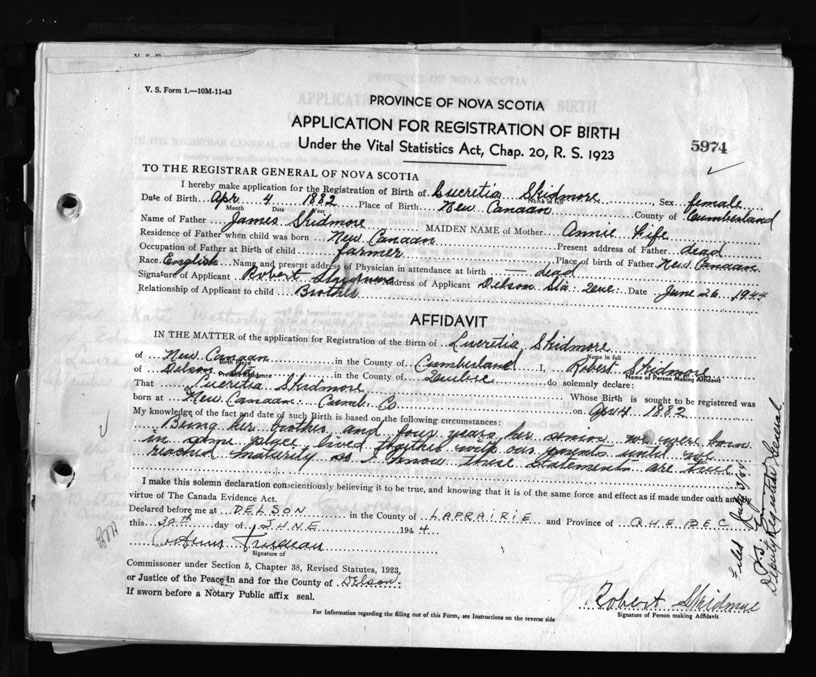 V. S. Form 1.—10M-11-43
PROVINCE OF NOVA SCOTIA
APPLICATION FOR REGISTRATION OF BIRTH
Under the Vital Statistics Act, Chap. 20, R. S. 1923
5974
TO THE REGISTRAR GENERAL OF NOVA SCOTIA
I hereby make application for the Registration of Birth of Lucretia Skidmore, Sex female
Name in full
Date of Birth Apr 4 1882 Place of Birth New Canaan County of Cumberland
Month Date Year
Name of Father James Skidmore MAIDEN NAME of Mother Annie Fife
Residence of Father when child was born New Canaan Present address of Father dead
Occupation of Father at Birth of child farmer Place of birth of Father New Canaan
Race English Name and present address of Physician in attendance at birth — dead
Signature of Applicant Robert Skidmore address of Applicant Delson Sta. Date June 26 1944
Relationship of Applicant to child Brother
AFFIDAVIT
IN THE MATTER of the application for Registration of the Birth of Lucretia Skidmore
Name in full
of New Canaan in the County of Cumberland I, Robert Skidmore
Birth Place Name of Person Making Affidavit
of Delson Sta in the County of Quebec do solemnly declare:
That Lucretia Skidmore Whose Birth is sought to be registered was
born at New Canaan Cumb. Co on Apr 4 1882
My knowledge of the fact and date of such Birth is based on the following circumstances:
Being her brother and four years her senior we were born
in same place lived together with our parents until we
reached maturity so I know these statements are true
I make this solemn declaration conscientiously believing it to be true, and knowing that it is of the same force and effect as if made under oath and by
virtue of The Canada Evidence Act.
Declared before me at DELSON in the County of LAPRAIRIE and Province of QUEBEC
this 30th day of JUNE 1944
Trudeau
Signature of
Commissioner under Section 5, Chapter 38, Revised Statutes, 1923,
or Justice of the Peace in and for the County of Delson.
If sworn before a Notary Public affix seal.
Robert Skidmore
Signature of Person making Affidavit
For Information regarding the filling out of this Form, see Instructions on the reverse side
Filed July
Deputy Registrar General